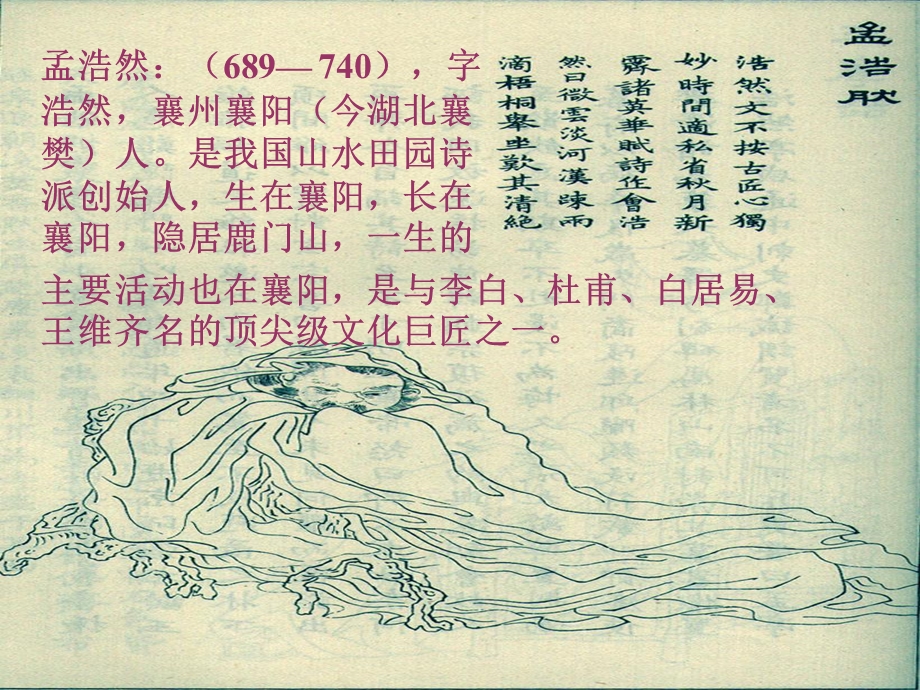 孟浩然：（689—740），字
浩然，襄州襄阳（今湖北襄
樊）人。是我国山水田园诗
派创始人，生在襄阳，长在
襄阳，隐居鹿门山，一生的
主要活动也在襄阳，是与李白、杜甫、白居易、
王维齐名的顶尖级文化巨匠之一。
孟浩肰
浩然文不按古匠心獨
妙時閒適私省秋月新
霽諸英華賦詩作會浩
然曰微雲淡河漢踈雨
滴梧桐舉坐歎其清絕